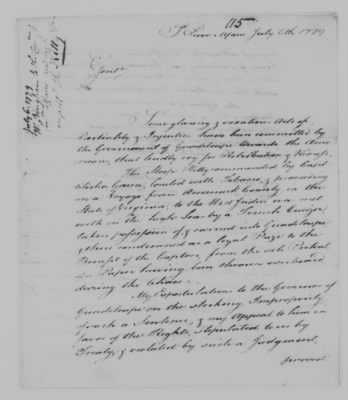 115
St Pierre July 6th 1779
Gentn
Some glaring & vexatious Acts of
Partiality & Injustice have been committed by
the Government of Guadeloupe towards the Ame
ricans, that loudly cry for Retribution & Redress.
The Sloop Kelly commanded by Capt
loaded with Tobacco, & proceeding
on a Voyage from County in the
State of Virginia, to the West Indies was met
with on the high Seas by a French Cruizer
taken possession of & carried into Guadeloupe
& there condemned as a legal Prize to the
Benefit of the Captors, from the sole Pretext
of a Paper having been thrown overboard
during the Chace.
My Expostulation to the Governor of
Guadeloupe on the shocking Impropriety
of such a Sentence, & my Appeal to him in
favor of the Rights, stipulated to us by
Treaty, & violated by such a Judgment,
proved
July 6 1779
Wm Bingham
Kelly